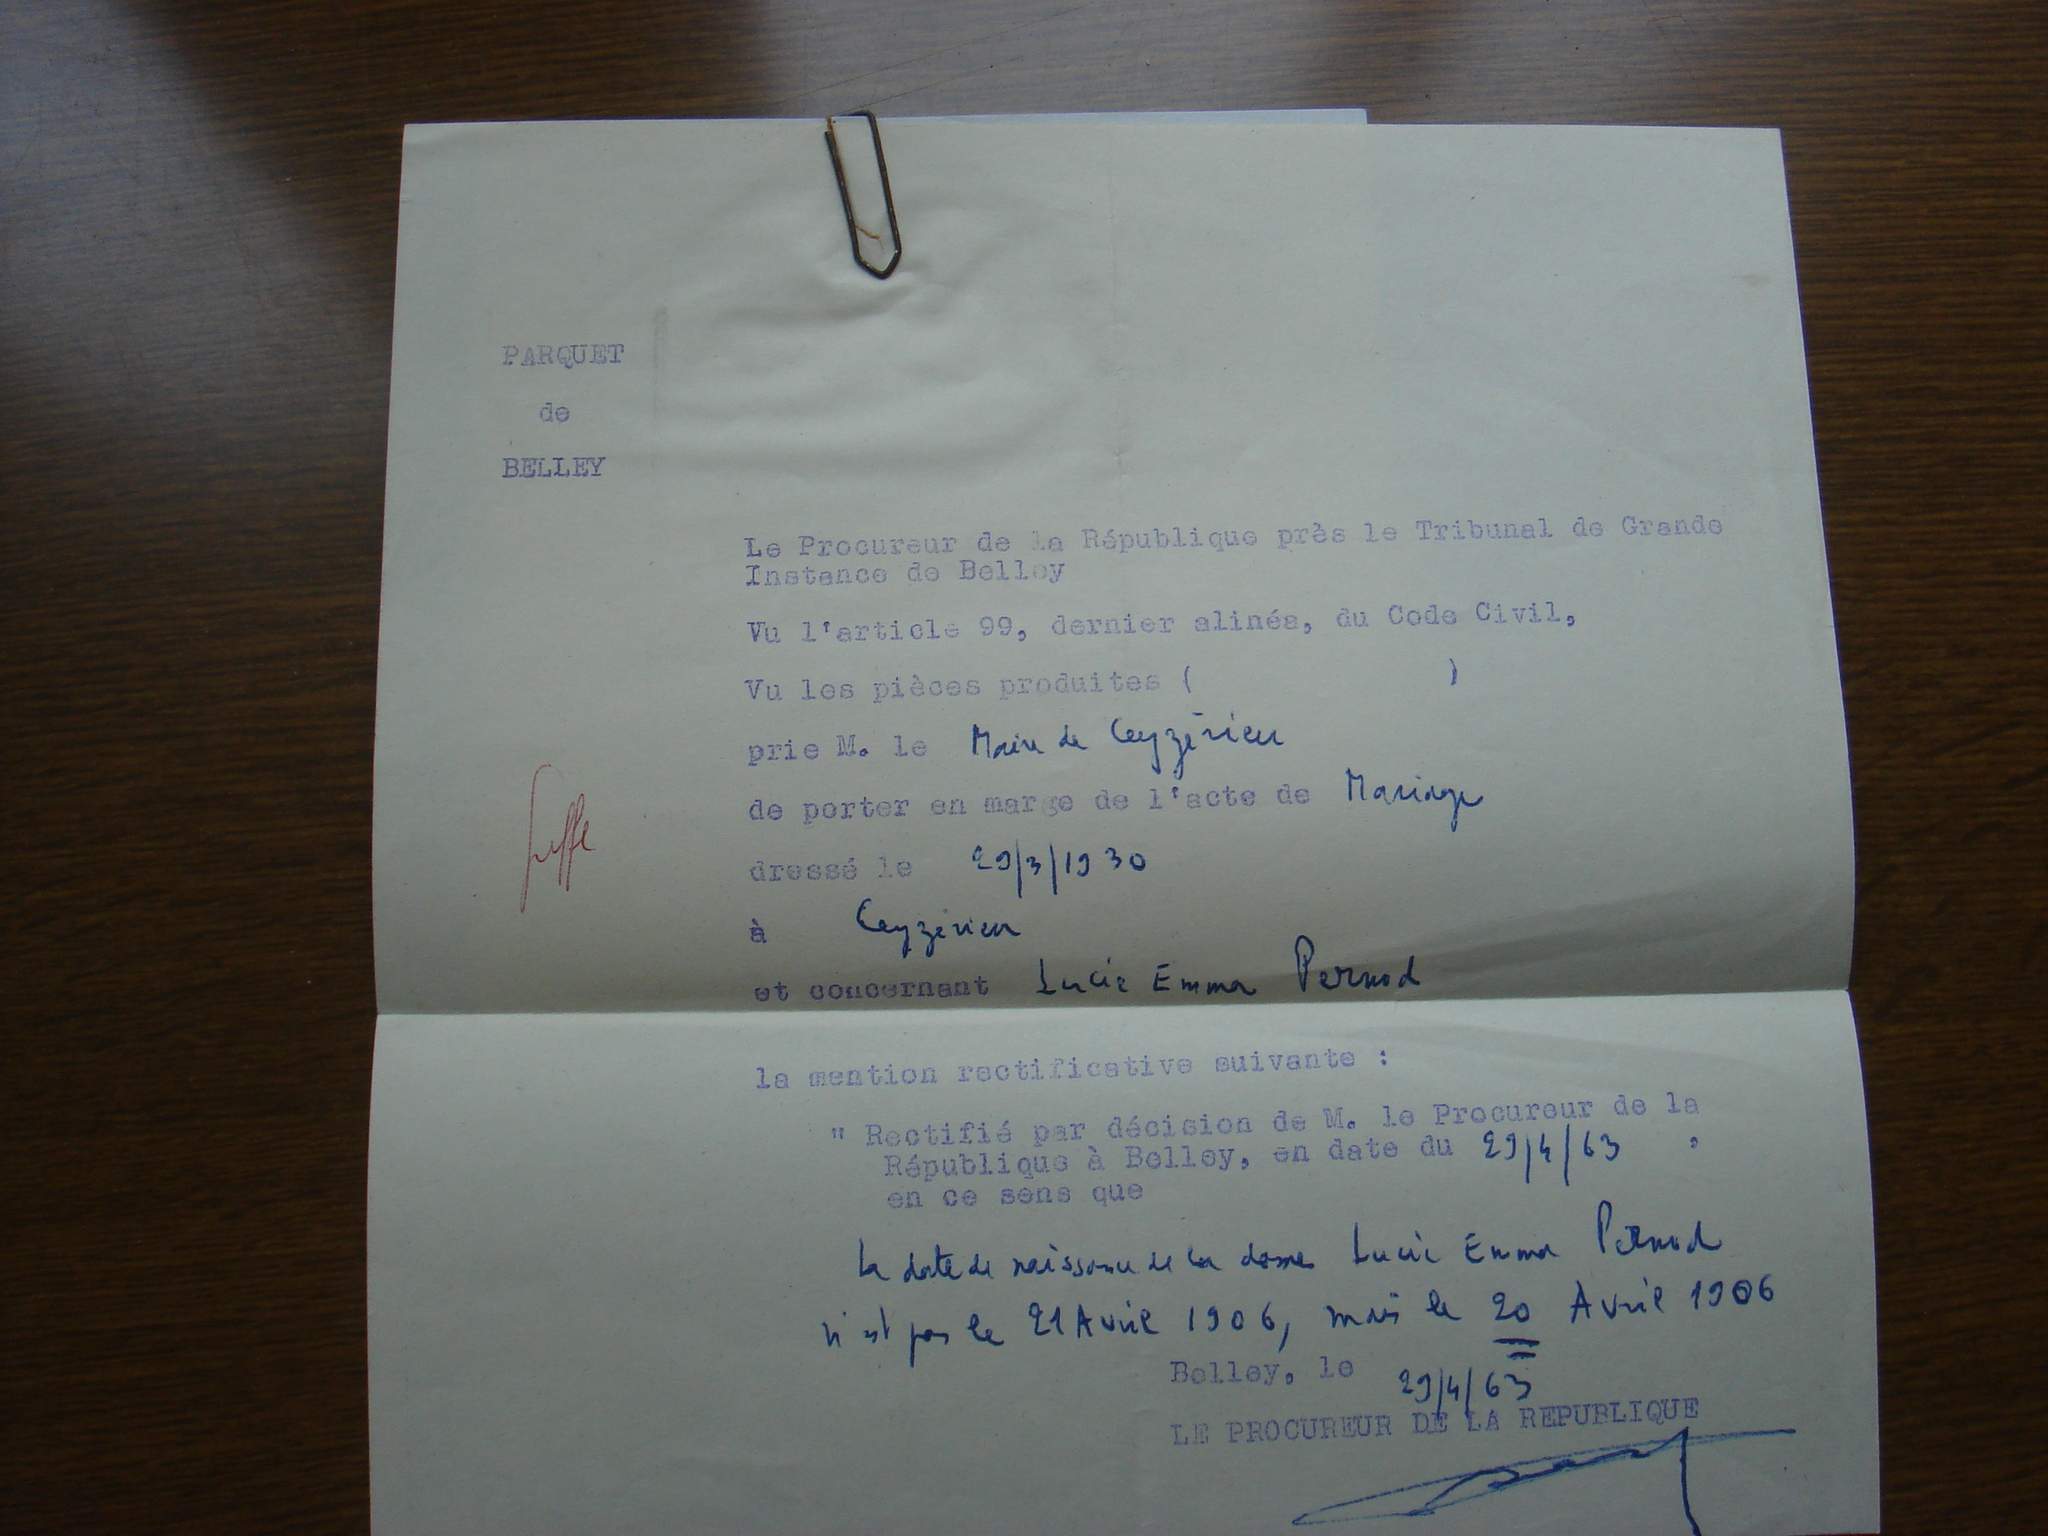 PARQUET
de
BELLEY
Le Procureur de la République près le Tribunal de Grande
Instance de Belley
Vu l'article 99, dernier alinéa, du Code Civil,
Vu les pièces produites ( )
prie M. le Maire de Ceyzérieu
de porter en marge de l'acte de Mariage
dressé le 29/3/1930
à Ceyzérieu
et concernant Lucie Emma Pernod
la mention rectificative suivante :
" Rectifié par décision de M. le Procureur de la
République à Belley, en date du 29/4/63 ,
en ce sens que
la date de naissance de la dame Lucie Emma Pernod
n'est pas le 21 Avril 1906, mais le 20 Avril 1906
Belley, le 29/4/63
LE PROCUREUR DE LA REPUBLIQUE